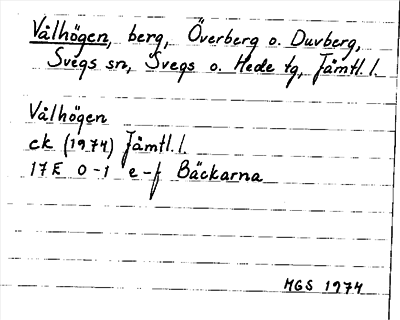 Vålhögen, berg, Överberg o. Duvberg,
Svegs sn, Svegs o. Hede tg, Jämtl. l.
Vålhögen
ck (1974) Jämtl. l.
17E 0-1 e-f Bäckarna
MGS 1974